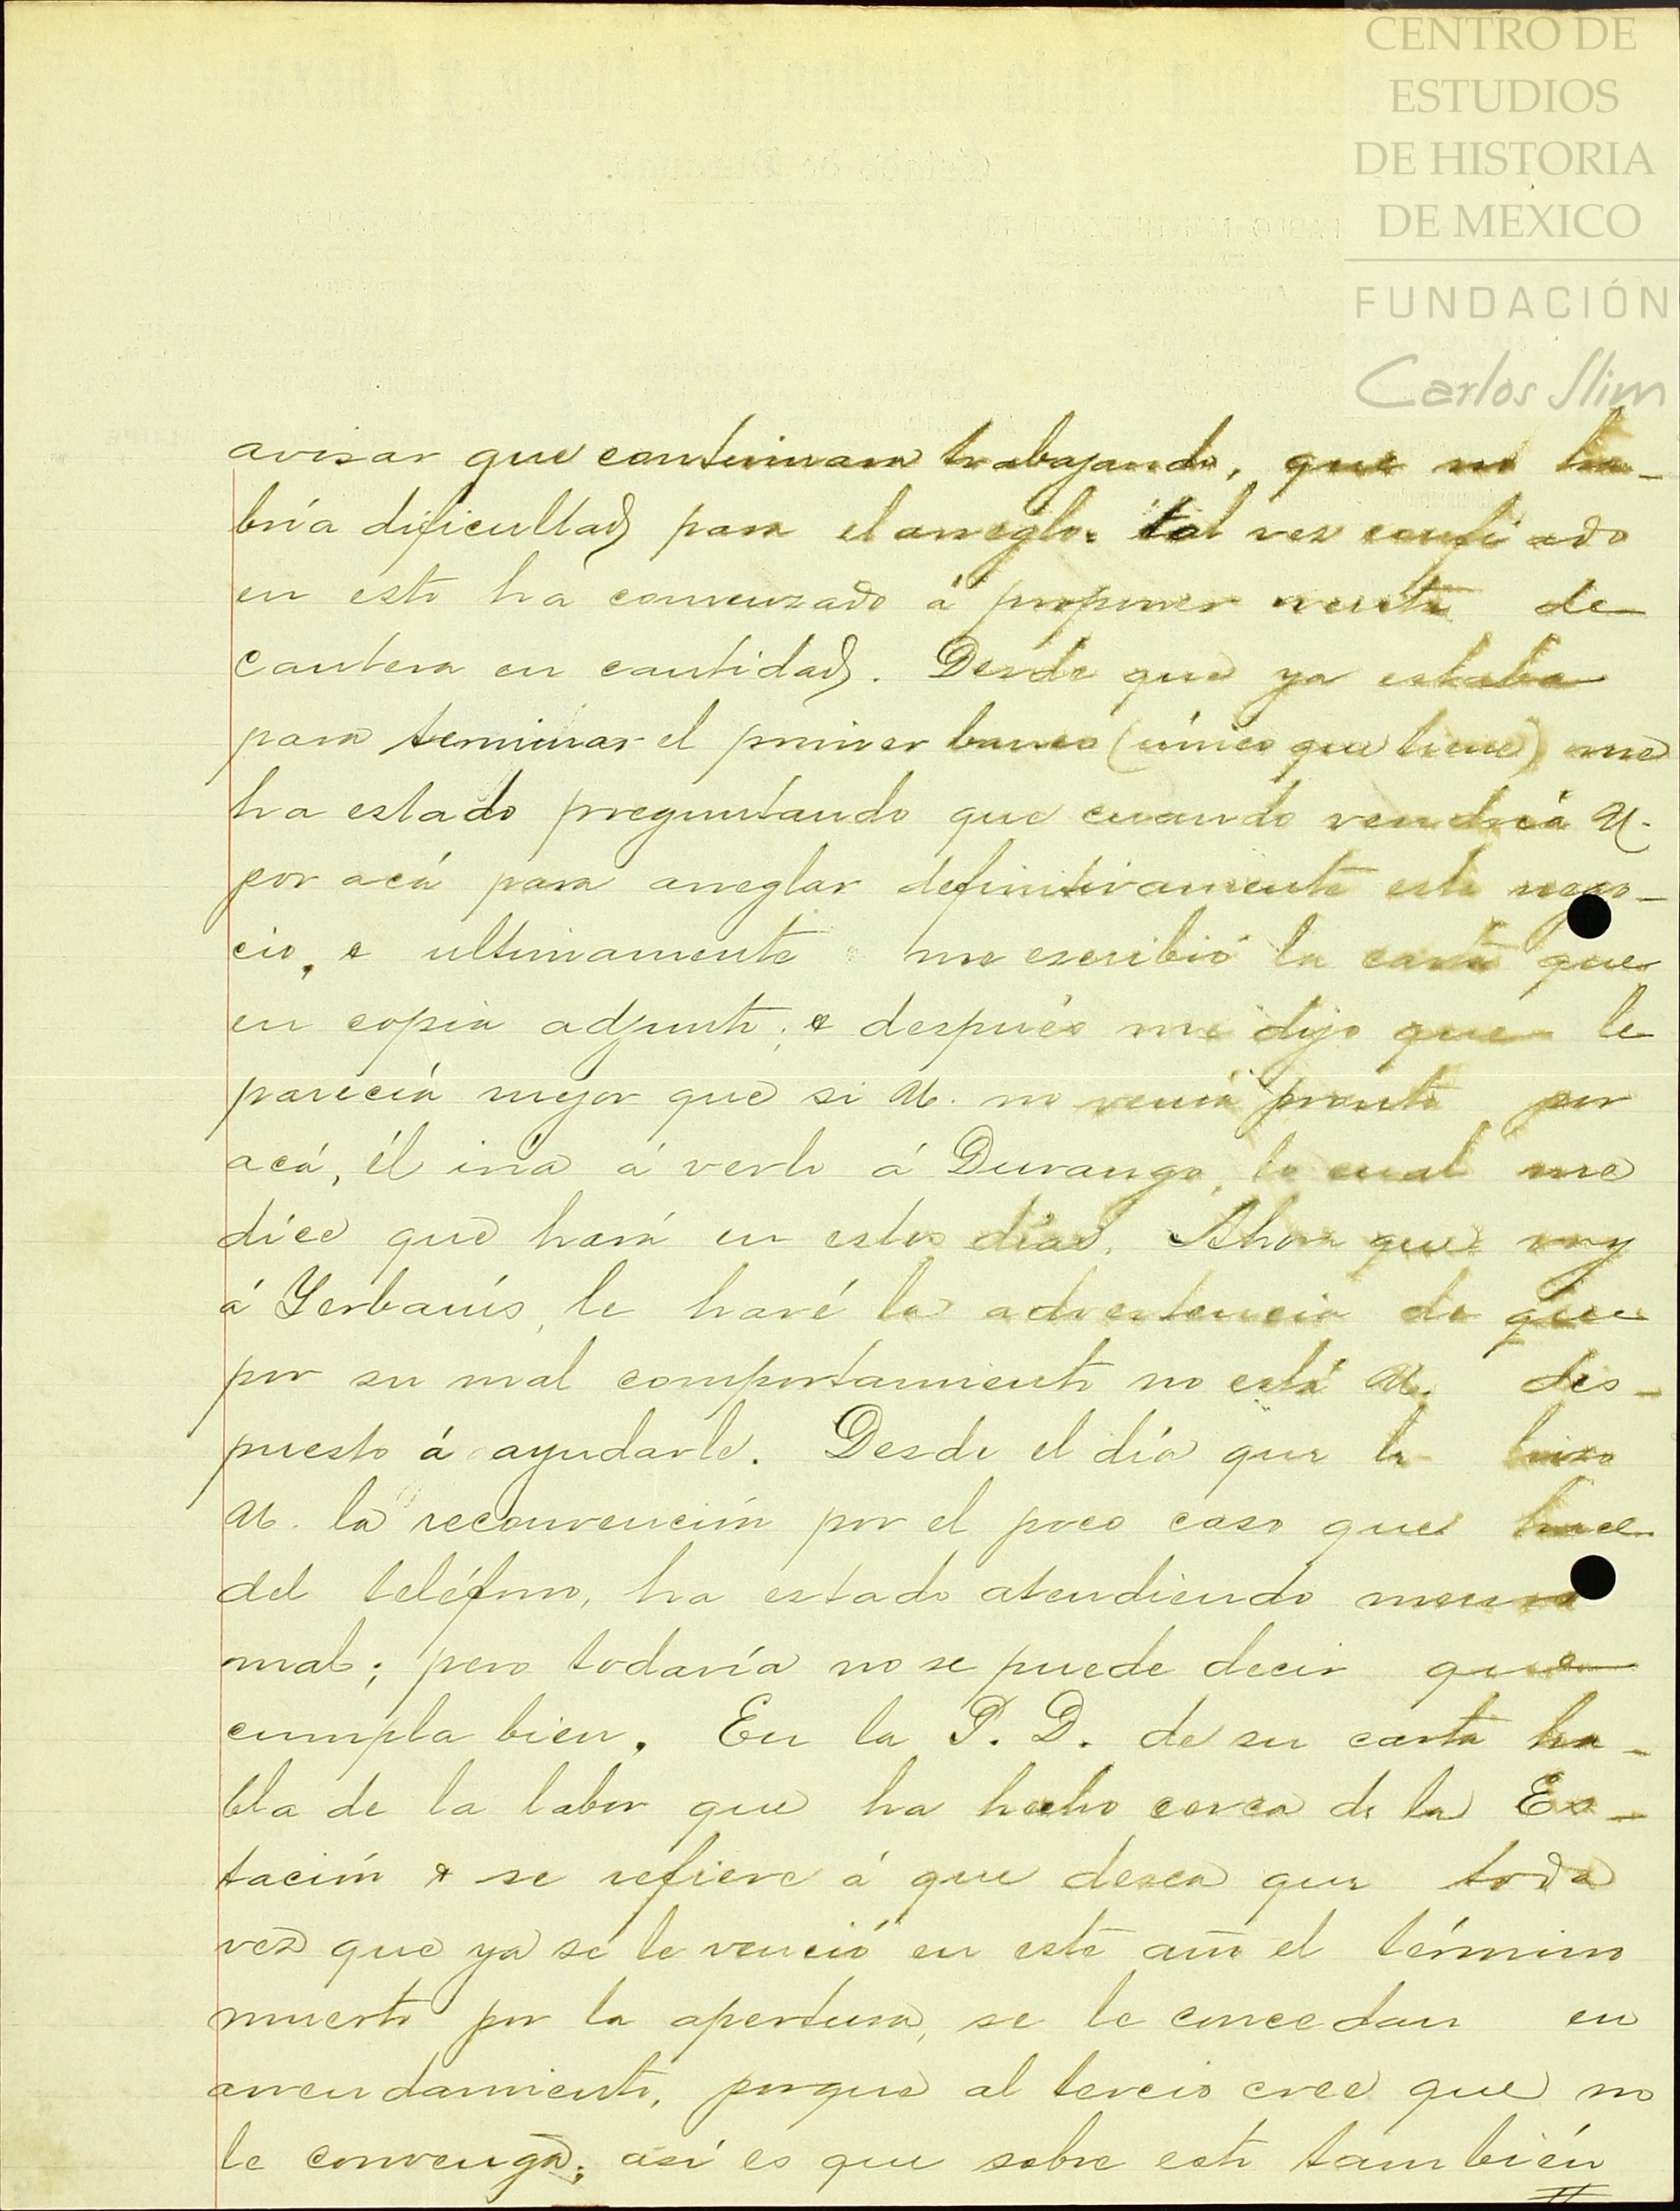 CENTRO DE
ESTUDIOS
DE HISTORIA
DE MEXICO
FUNDACIÓN
Carlos Slim
avisar que continuara trabajando, que no ha-
bría dificultad para el arreglo. tal vez confiado
en esto ha comenzado á proponer venta de
cantera en cantidad. Desde que ya estaba
para terminar el primer banco (único que tiene) me
ha estado preguntando que cuando vendría U.
por acá para arreglar definitivamente este nego-
cio, & ultimamente me escribió la carta que
en copia adjunto; & después me dijo que le
parecía mejor que si U. no venía pronto por
acá, él iría á verlo á Durango, lo cual me
dice que hará en estos días. Ahora que voy
á Yerbanís, le haré la advertencia de que
por su mal comportamiento no está U. dis-
puesto á ayudarle. Desde el día que le hizo
U. la reconvención por el poco caso que hace
del teléfono, ha estado atendiendo menos
mal; pero todavía no se puede decir que
cumpla bien. En la P. D. de su carta ha-
bla de la labor que ha hecho cerca de la Es-
tación & se refiere á que desea que toda
vez que ya se le venció en este año el término
muerto por la apertura, se le concedan en
arrendamiento, porque al tercio cree que no
le convenga; así es que sobre esto también